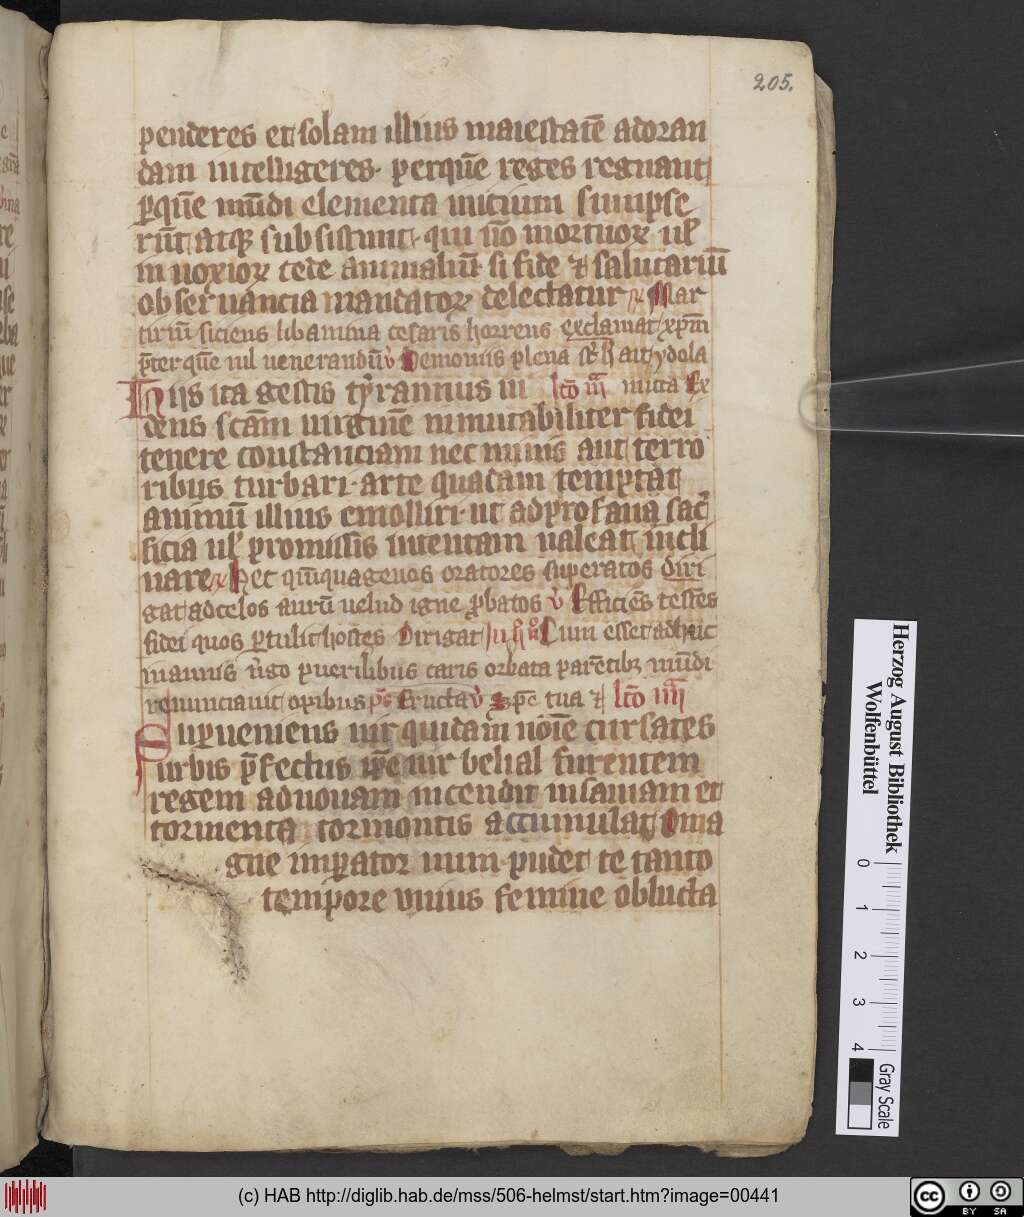 205.
penderes et solam illius maiestatē adoran
dam intelligeres. perquē reges regnant
ꝑquē mūdi elementa inicium sumpse
rūt atqꝫ subsistunt. qui nō mortuoꝝ ul̛
in noxioꝝ cede animaliū. si fide ⁊ salutariū
obseruancia mandatoꝝ delectatur ꝶ Mar
tirium siciens libamina cesaris horrens exclamat xp̄m
p̄ter quē nil uenerandū v̉ Demoniis plena
Hijs ita gestis tyrannus ui lc̄o iii
dens sc̄am uirginē inmutabiliter fidei
tenere constanciam nec minis aut terro
ribus turbari. arte quadam temptat
animū illius emolliri. ut ad profana sac̉
ficia ul̛ promissis intentam ualeat incli
nare ꝶ Hec quīquagenos oratores superatos diri
gat ad celos aurū uelud igne ꝓbatos v̉ Efficiēs testes
fidei quos ꝑtulit hostes Dirigat Cum esset adhuc
in annis v̉go puerilibus caris orbata parētibꝫ mūdi
renunciauit opibus ps̄ Eructa v̉ Spē tua ⁊ lc̄o iiii
Superueniens uir quidam noīe cursates
urbis p̄fectus ip̄e uir belial furentem
regem ad nouam incendit insaniam et
tormenta tormentis accumulat. O ma
gne imꝑator num pudet te tanto
tempore unius femine oblucta
Herzog August Bibliothek
Wolfenbüttel
0 1 2 3 4
Gray Scale
(c) HAB http://diglib.hab.de/mss/506-helmst/start.htm?image=00441
cc BY SA